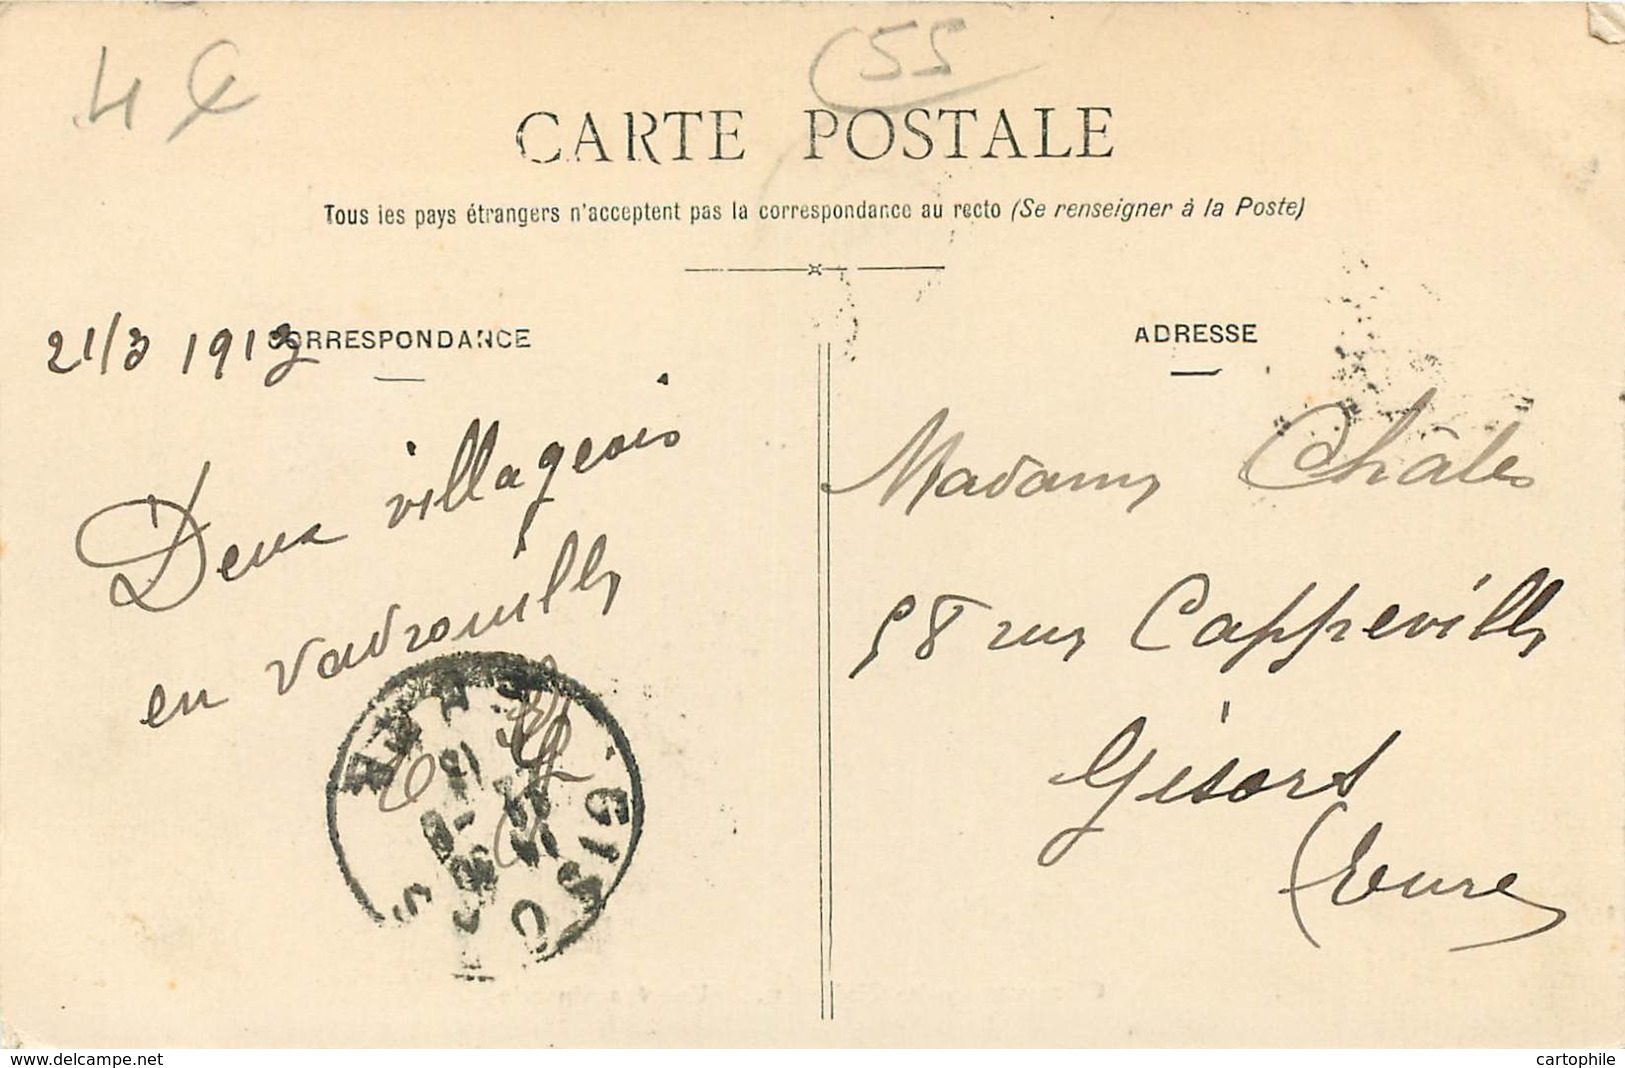 4 €
55
CARTE POSTALE
Tous les pays étrangers n'acceptent pas la correspondance au recto (Se renseigner à la Poste)
CORRESPONDANCE
21/3 1912
Deux villageois
en vadrouille
GISORS
EURE
ADRESSE
Madame Châles
58 rue Cappeville
Gisors
(Eure)
www.delcampe.net
cartophile